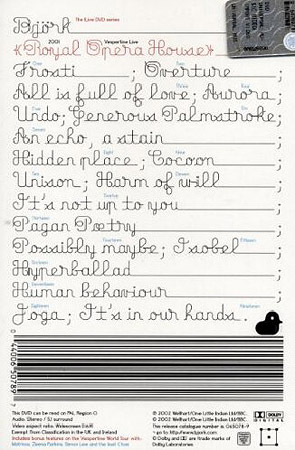 Björk The (Live DVD series
2001 Vespertine Live
«Royal Opera House»
One Two
Frosti ; Overture ;
Three Four
All is full of love; Aurora;
Five Six
Undo; Generous Palmstroke;
Seven
An echo, a stain ;
Eight Nine
Hidden place; Cocoon ;
Ten Eleven
Unison ; Harm of will ;
Twelve
It's not up to you ;
Thirteen
Pagan Poetry ;
Fourteen Fifteen
Possibly maybe; Isobel ;
Sixteen
Hyperballad ;
Seventeen
Human behaviour ;
Eighteen Nineteen
Joga; It's in our hands.
This DVD can be read on PAL Region O
Audio: Stereo / 5.1 surround
Video aspect ratio: Widescreen (16:9)
Exempt from Classification in the U.K. and Ireland
Includes bonus features on the Vespertine World Tour with:
Matmos, Zeena Parkins, Simon Lee and the Inuit Choir
© 2002 Wellhart/One Little Indian Ltd/BBC.
℗ 2002 Wellhart/One Little Indian Ltd/BBC.
This release catalogue number is: 065078-9
go to: http://www.bjork.com
Dolby and are trade marks of
Dolby Laboratories
DOLBY DIGITAL